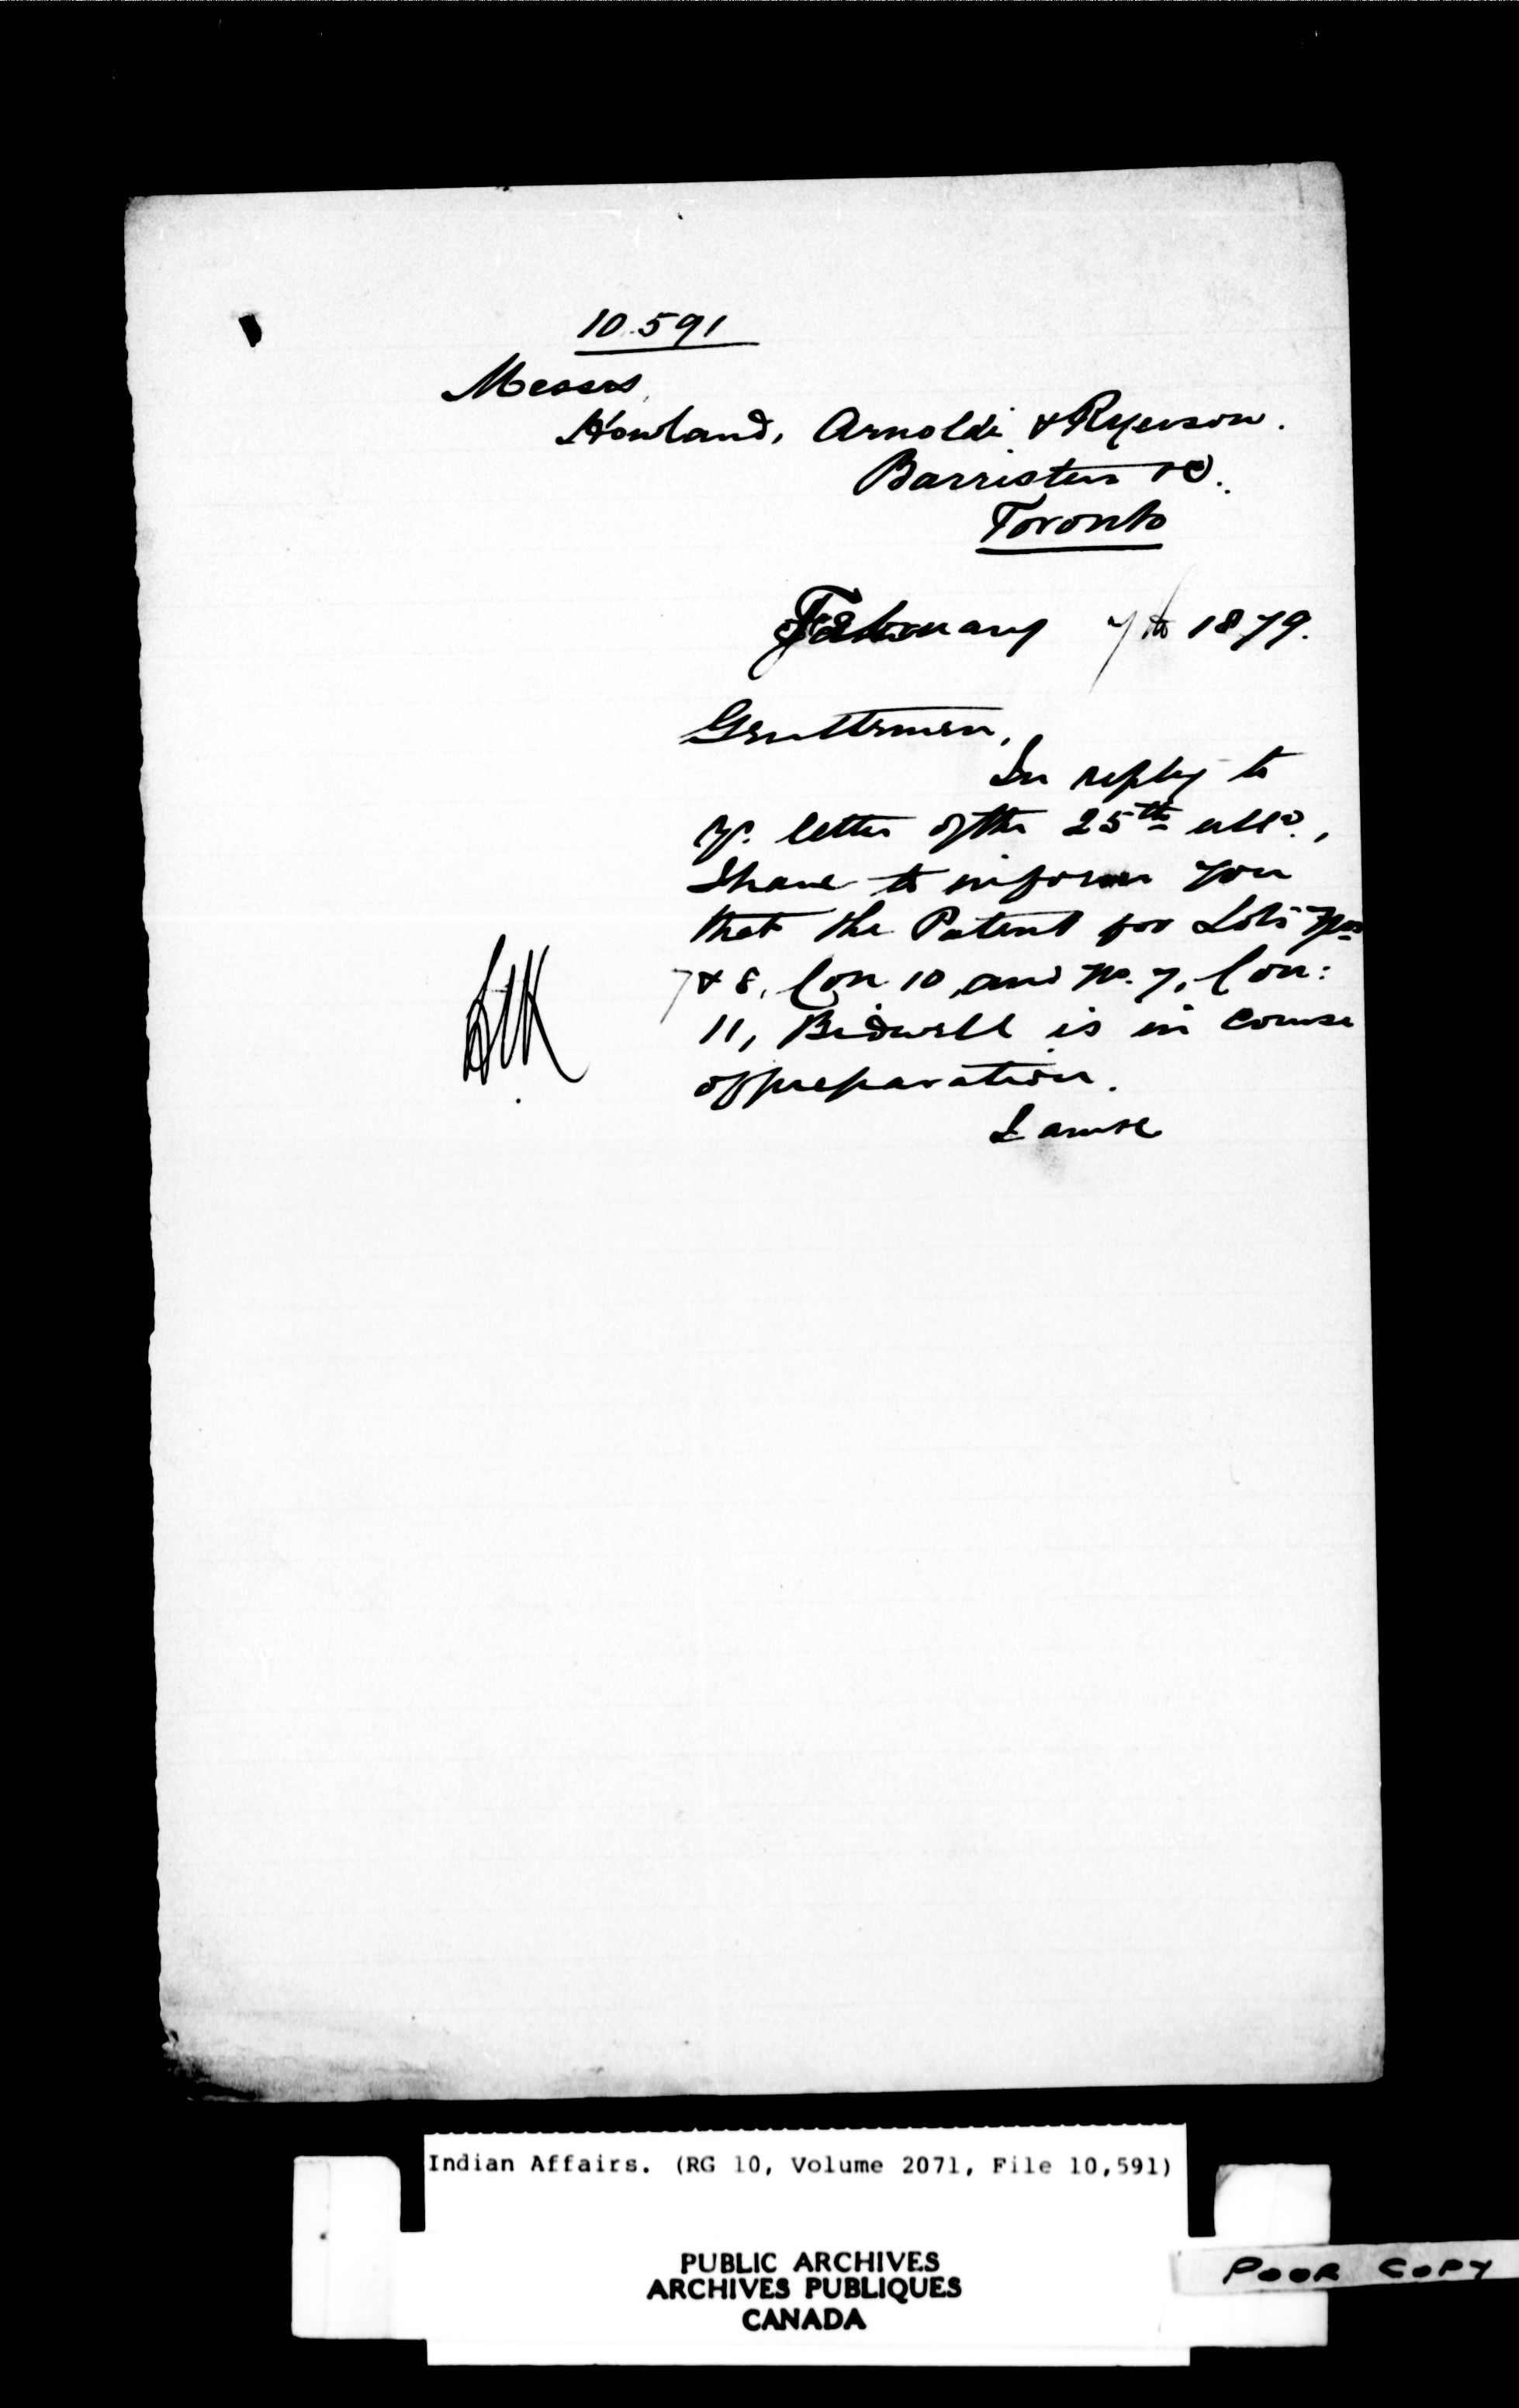 10.591
Messrs,
Howland, Arnoldi & Ryerson.
Barristers &c.
Toronto
February 7th 1879.
Gentlemen,
In reply to
yr. letter of the 25th ulto.,
I have to inform you
that the Patent for Lots Nos
7 & 8, Con 10, and No. 7, Con:
11, Bidwell is in course
of preparation.
I am &c
Indian Affairs. (RG 10, Volume 2071, File 10,591)
PUBLIC ARCHIVES
ARCHIVES PUBLIQUES
CANADA
POOR COPY